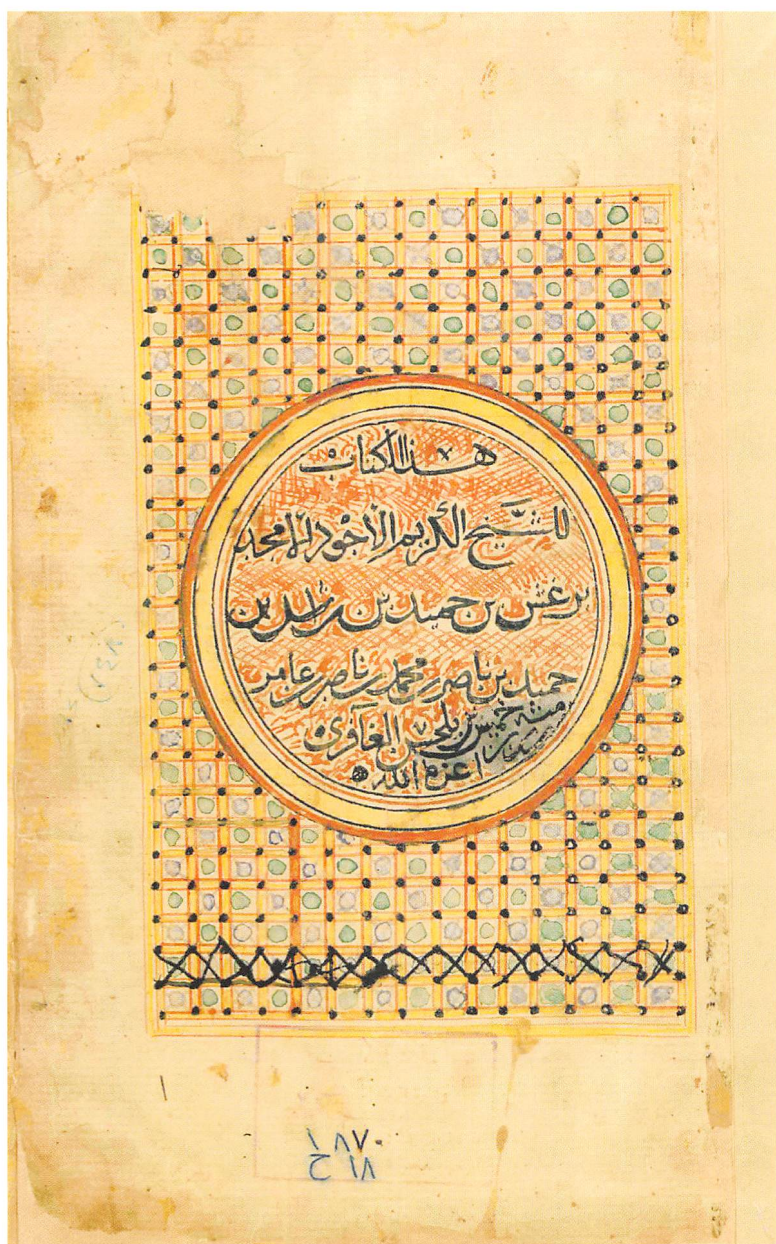 هذا الكتاب
للشيخ الكريم الأجود الأمجد
برغش بن حميد بن راشد بن
حميد بن ناصر بن محمد بن ناصر بن عامر
خميس بن بلحسن الغافري
أعزه الله
١٨٧٠
١٨ ح